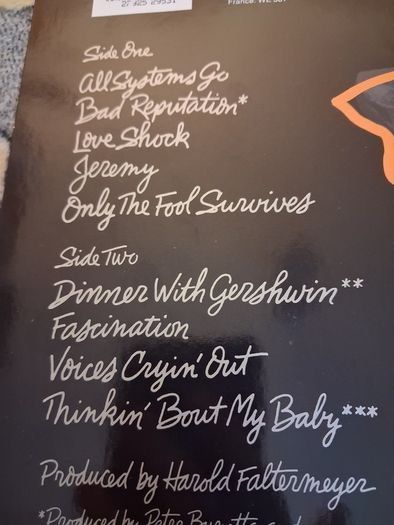 France: WE
Side One
All Systems Go
Bad Reputation*
Love Shock
Jeremy
Only The Fool Survives
Side Two
Dinner With Gershwin**
Fascination
Voices Cryin' Out
Thinkin' Bout My Baby***
Produced by Harold Faltermeyer
*Produced by Peter